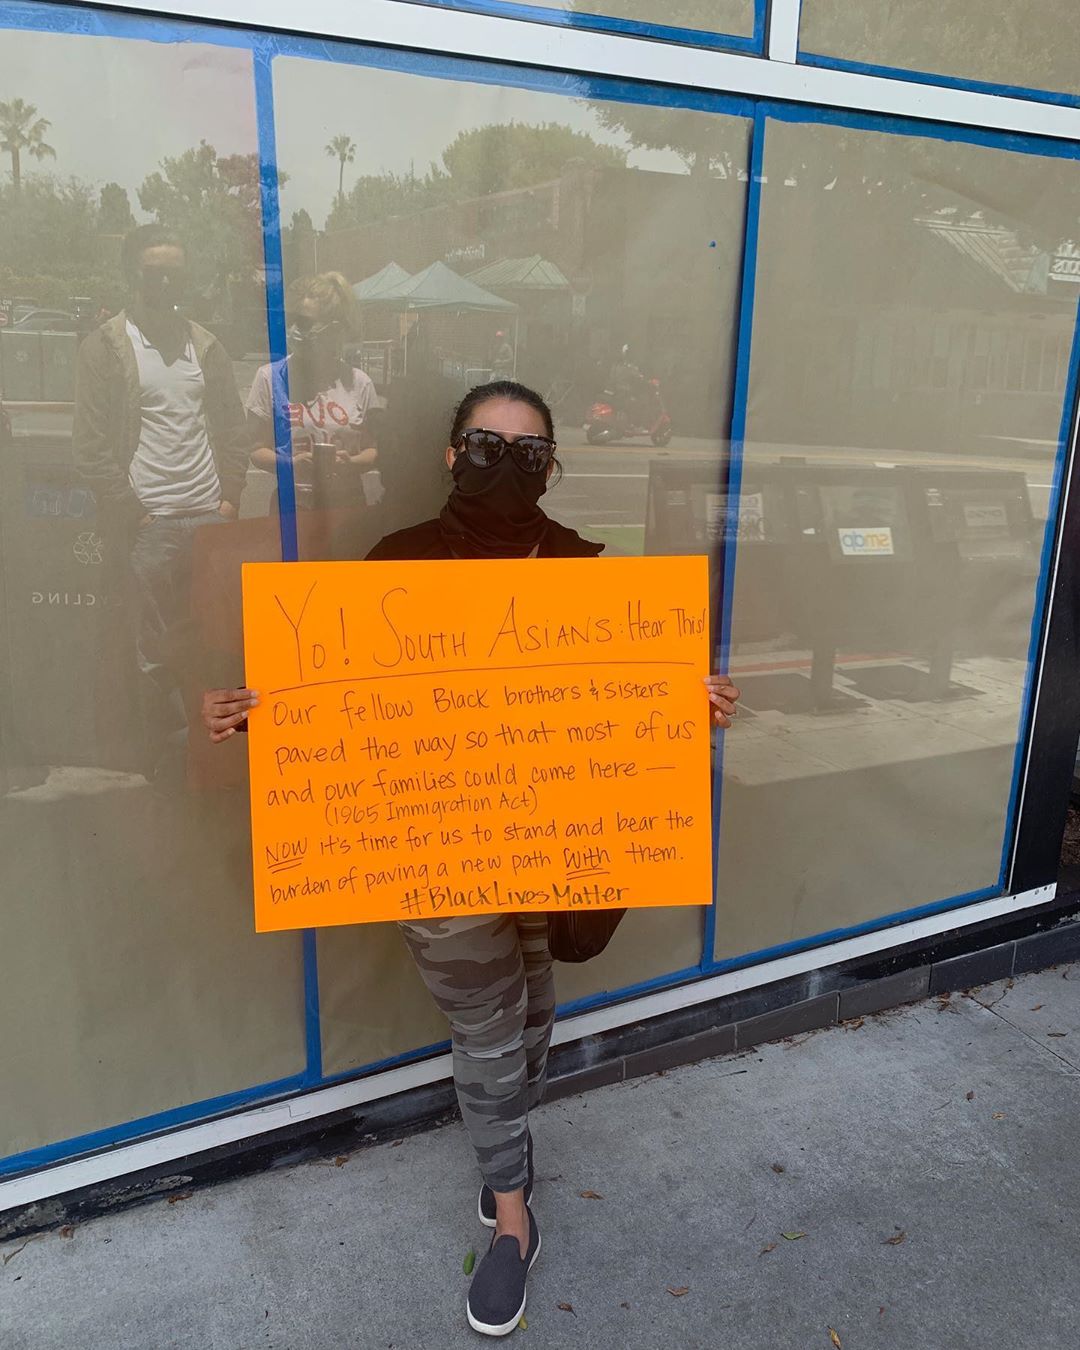 Yo! South Asians: Hear This!
Our fellow Black brothers & sisters
paved the way so that most of us
and our families could come here —
(1965 Immigration Act)
NOW it's time for us to stand and bear the
burden of paving a new path with them.
#BlackLivesMatter
smdp
CYCLING